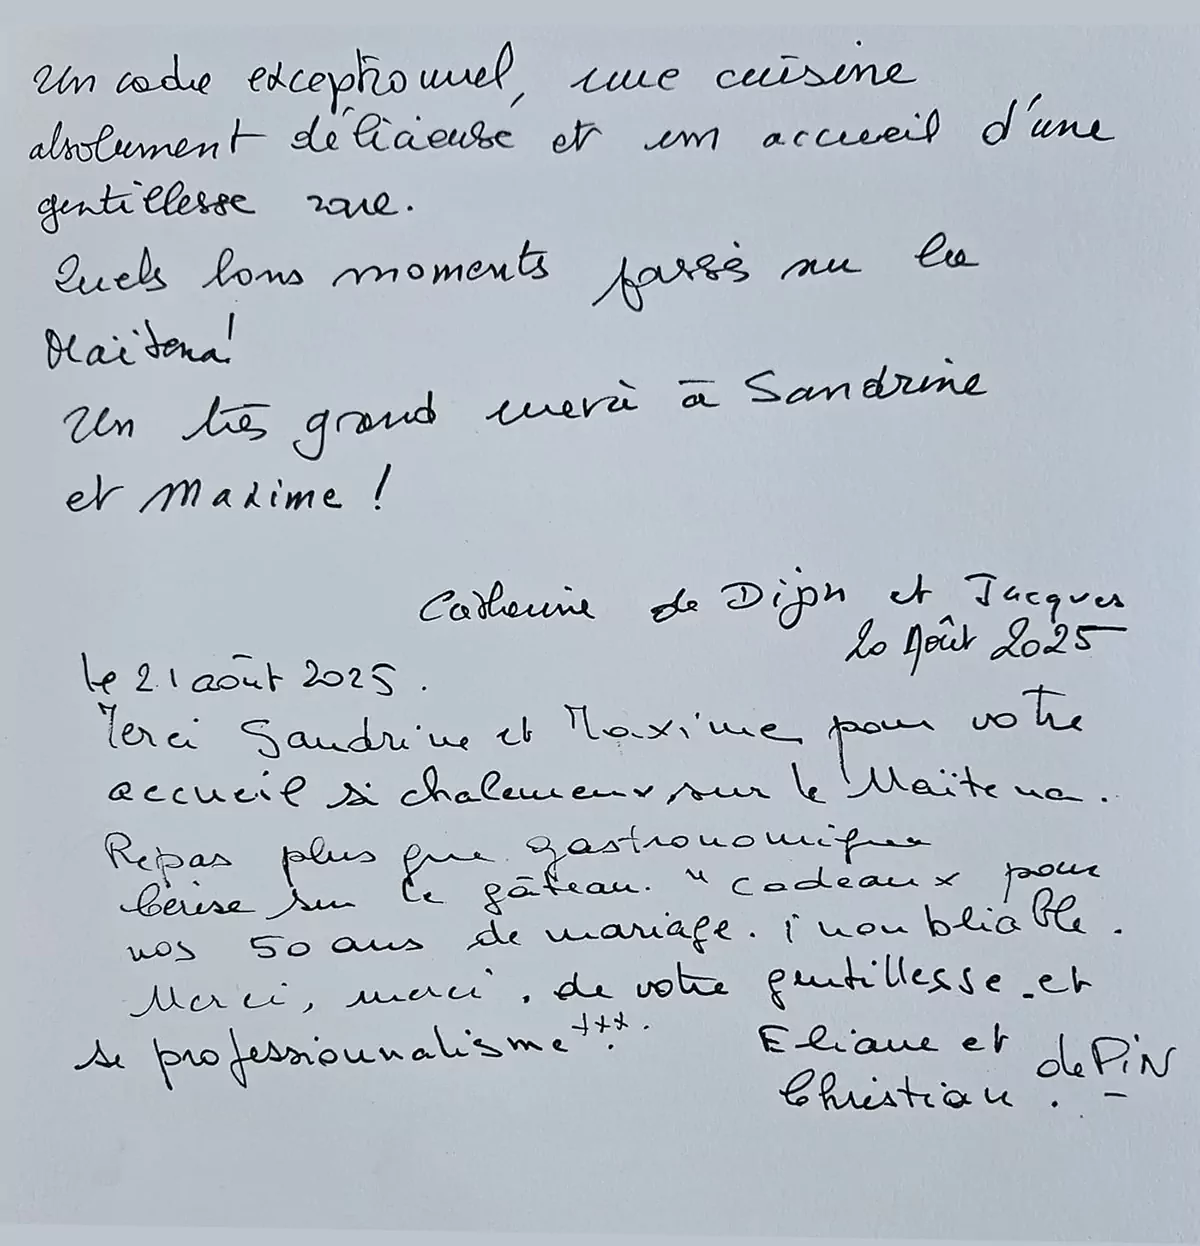 Un cadre exceptionnel, une cuisine
absolument délicieuse et un accueil d'une
gentillesse rare.
Quels bons moments passés sur le
Maïtena!
Un très grand merci à Sandrine
et Maxime !
Catherine de Dijon et Jacques
20 Août 2025
le 21 août 2025.
Merci Sandrine et Maxime pour votre
accueil si chaleureux, sur le Maïtena.
Repas plus que gastronomique
Cerise sur le gâteau. " cadeaux pour
nos 50 ans de mariage. inoubliable.
Merci, merci, de votre gentillesse et
se professionnalisme +++.
Eliane et
Christian. de PiN